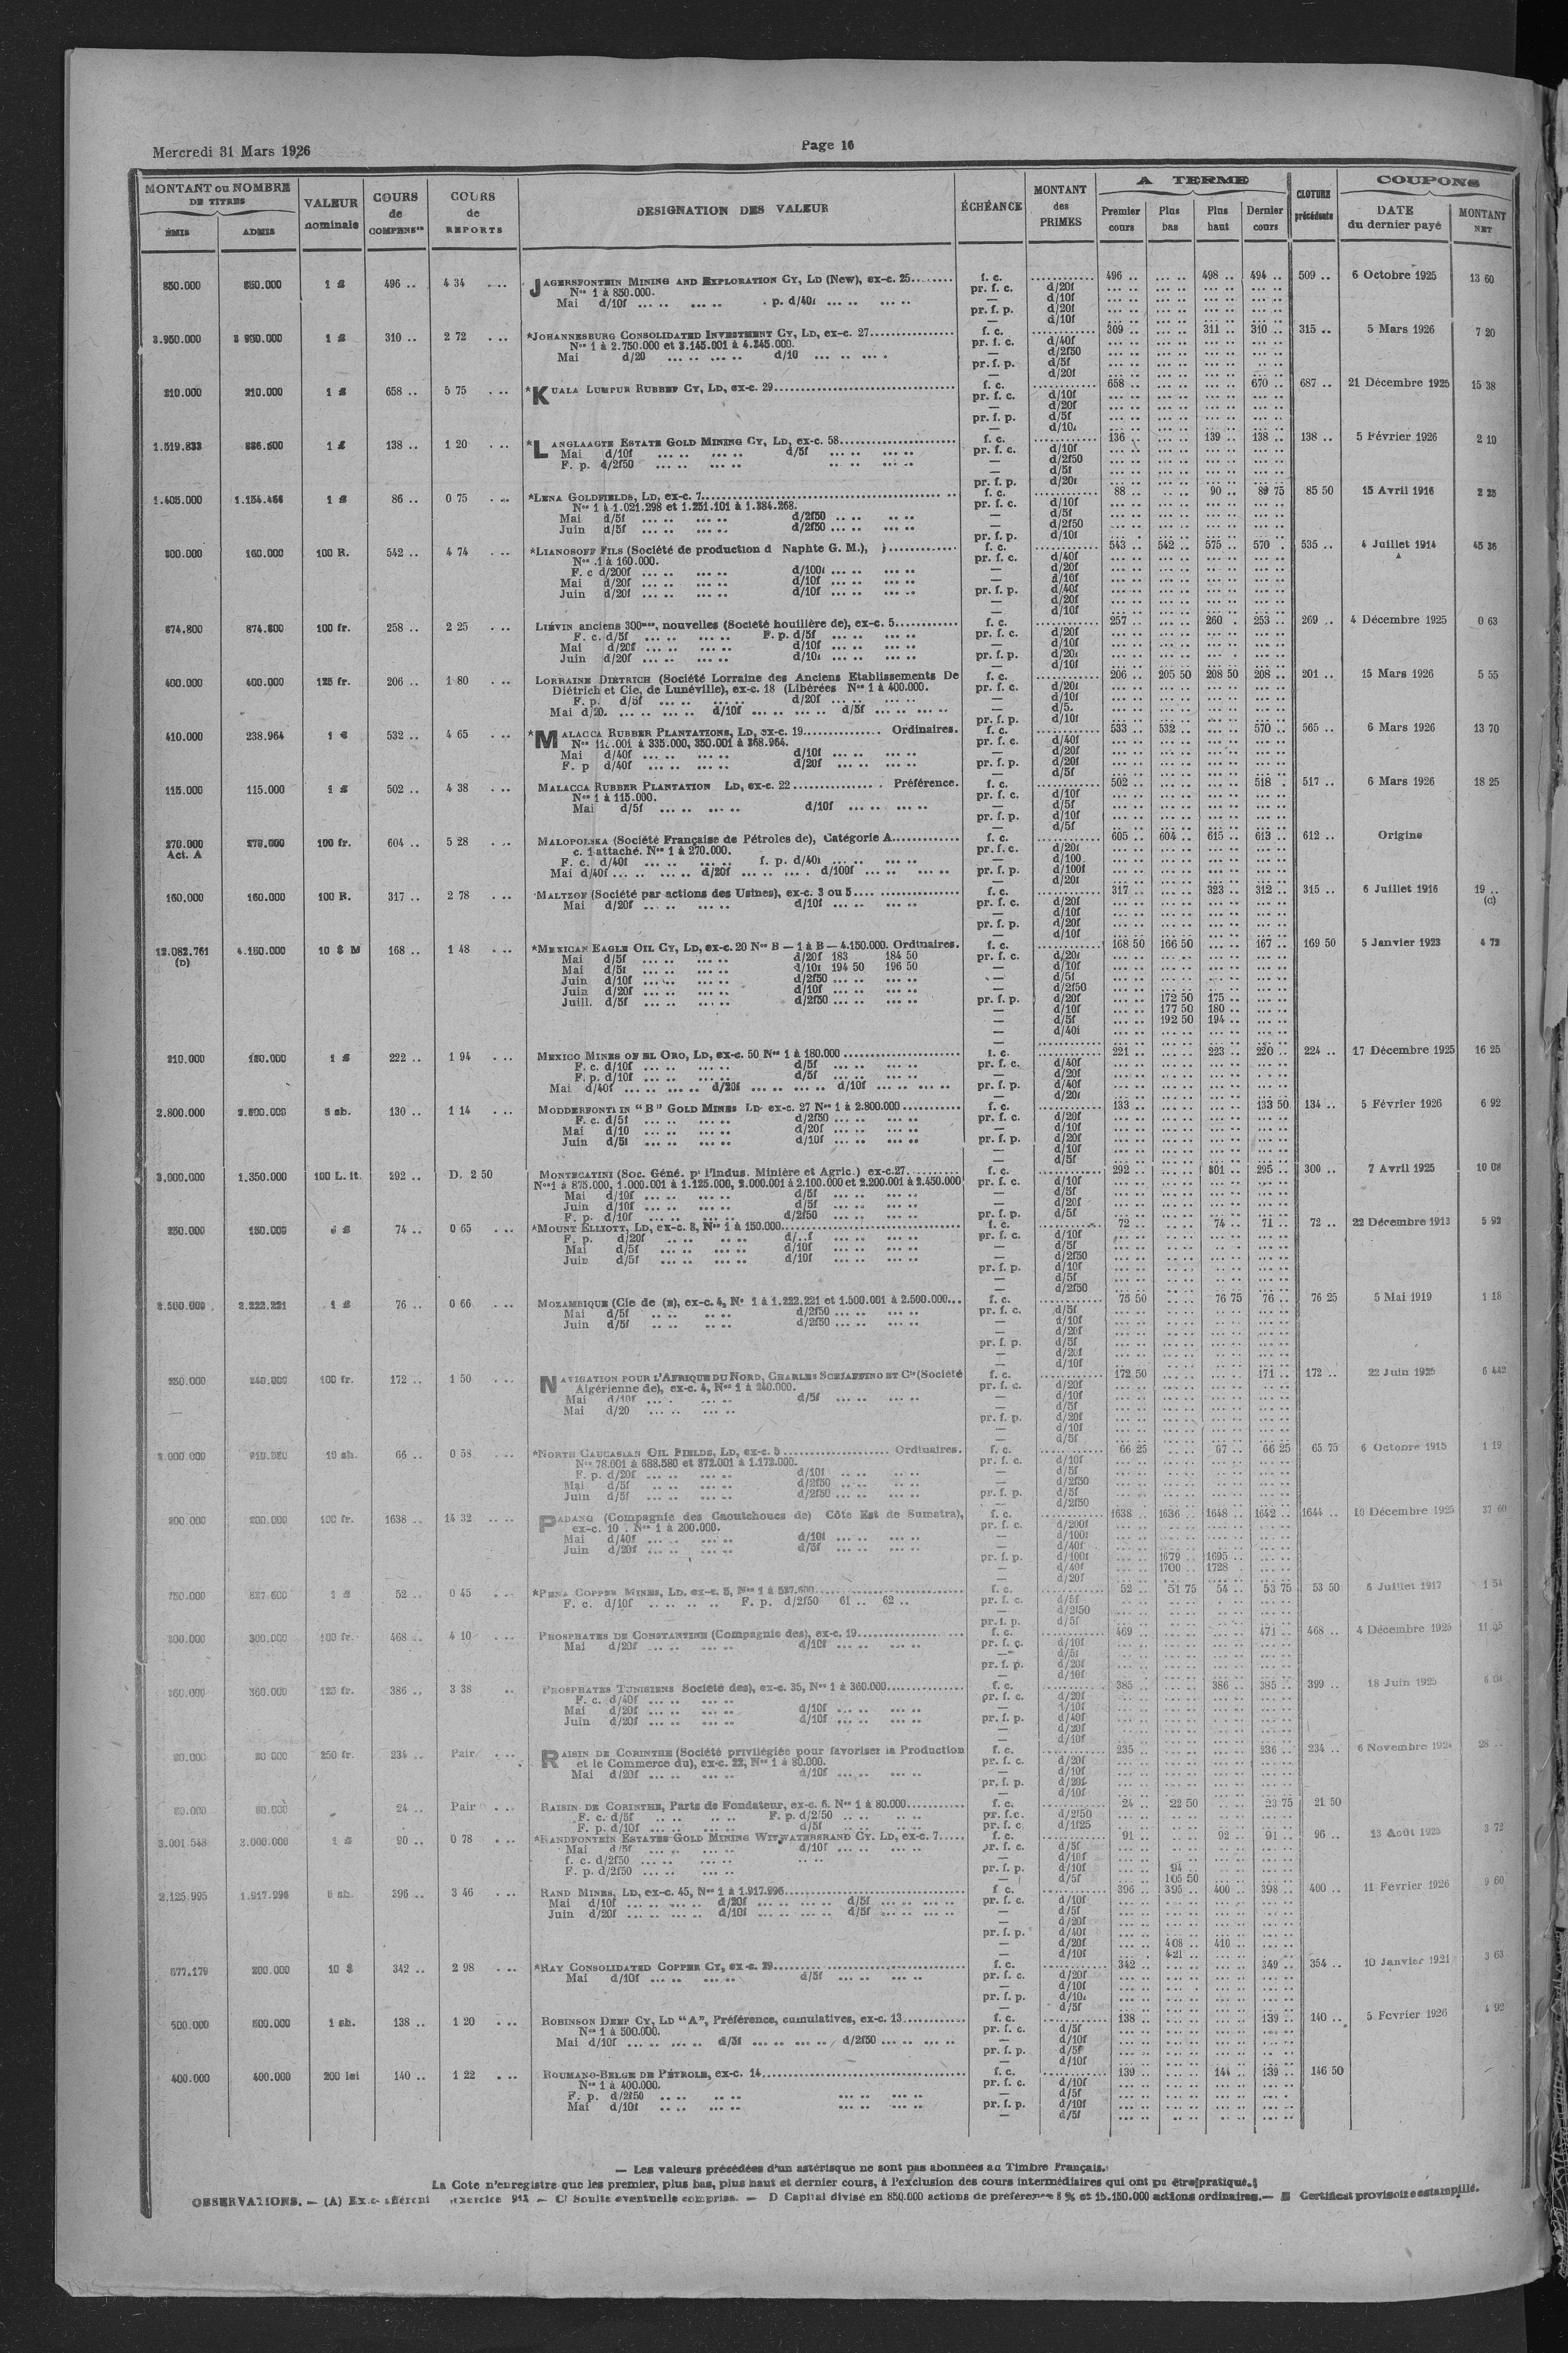 Mercredi 31 Mars 1926
Page 16
MONTANT ou NOMBRE DE TITRES
ÉMIS ADMIS
VALEUR nominale
COURS de COMPENSon
COURS de REPORTS
DESIGNATION DES VALEUR
ÉCHÉANCE
MONTANT des PRIMES
A TERME
Premier cours Plus bas Plus haut Dernier cours
CLOTURE précédente
COUPONS
DATE du dernier payé MONTANT NET
850.000 850.000 1 £ 496 .. 4 34 JAGERSFONTEIN MINING AND EXPLORATION CY, LD (New), ex-c. 25 f. c. 496 .. 498 .. 494 .. 509 .. 6 Octobre 1925 13 60
Nos 1 à 850.000. pr. f. c. d/20f
Mai d/10f p. d/40f — d/10f
pr. f. p. d/20f
— d/10f
3.950.000 3 950.000 1 £ 310 .. 2 72 *JOHANNESBURG CONSOLIDATED INVESTMENT CY, LD, ex-c. 27 f. c. 309 .. 311 .. 310 .. 315 .. 5 Mars 1926 7 20
Nos 1 à 2.750.000 et 3.145.001 à 4.345.000. pr. f. c. d/40f
Mai d/20 d/10 — d/2f50
pr. f. p. d/5f
— d/20f
210.000 210.000 1 £ 658 .. 5 75 *KUALA LUMPUR RUBBER CY, LD, ex-c. 29 f. c. 658 .. 670 .. 687 .. 21 Décembre 1925 15 38
pr. f. c. d/10f
— d/20f
pr. f. p. d/5f
— d/10f
1.519.833 886.500 1 £ 138 .. 1 20 *LANGLAAGTE ESTATE GOLD MINING CY, LD, ex-c. 58 f. c. 136 .. 139 .. 138 .. 138 .. 5 Février 1926 2 10
Mai d/10f d/5f pr. f. c. d/10f
F. p. d/2f50 — d/2f50
— d/5f
pr. f. p. d/20f
1.405.000 1.154.466 1 £ 86 .. 0 75 *LENA GOLDFIELDS, LD, ex-c. 7 f. c. 88 .. 90 .. 89 75 85 50 15 Avril 1916 2 25
Nos 1 à 1.021.298 et 1.251.101 à 1.384.268. pr. f. c. d/10f
Mai d/5f d/2f50 — d/5f
Juin d/5f d/2f50 — d/2f50
pr. f. p. d/10f
300.000 160.000 100 R. 542 .. 4 74 *LIANOSOFF FILS (Société de production d Naphte G. M.), f. c. 543 .. 542 .. 575 .. 570 . 535 .. 4 Juillet 1914 45 36
A
Nos .1 à 160.000. pr. f. c. d/40f
F. c d/200f d/100f — d/20f
Mai d/20f d/10f — d/10f
Juin d/20f d/10f pr. f. p. d/40f
— d/20f
— d/10f
874.800 874.800 100 fr. 258 .. 2 25 LIÉVIN anciens 300mes, nouvelles (Societé houillère de), ex-c. 5 f. c. 257 .. 260 . 253 .. 269 .. 4 Décembre 1925 0 63
F. c. d/5f F. p. d/5f pr. f. c. d/20f
Mai d/20f d/10f — d/10f
Juin d/20f d/10f pr. f. p. d/20f
— d/10f
400.000 400.000 125 fr. 206 .. 1 80 LORRAINE DIÉTRICH (Société Lorraine des Anciens Etablissements De f. c. 206 .. 205 50 208 50 208 .. 201 .. 15 Mars 1926 5 55
Diétrich et Cie, de Lunéville), ex-c. 18 (Libérées Nos 1 à 400.000. pr. f. c. d/20f
F. p. d/5f d/20f — d/10f
Mai d/20. d/10f d/5f — d/5.
pr. f. p. d/10f
410.000 238.964 1 £ 532 .. 4 65 *MALACCA RUBBER PLANTATIONS, LD, ex-c. 19 Ordinaires. f. c. 533 .. 532 .. 570 .. 565 .. 6 Mars 1926 13 70
.001 à 335.000, 350.001 à 368.964. pr. f. c. d/40f
Mai d/40f d/10f — d/20f
F. p d/40f d/20f pr. f. p. d/20f
— d/5f
115.000 115.000 1 £ 502 .. 4 38 MALACCA RUBBER PLANTATION LD, ex-c. 22 Préférence. f. c. 502 .. 518 . 517 .. 6 Mars 1926 18 25
Nos 1 à 115.000. pr. f. c. d/10f
Mai d/5f d/10f — d/5f
pr. f. p. d/10f
— d/5f
270.000 270.000 100 fr. 604 .. 5 28 MALOPOLSKA (Société Française de Pétroles de), Catégorie A f. c. 605 .. 604 .. 615 .. 613 .. 612 .. Origine
Act. A c. 1 attaché. Nos 1 à 270.000. pr. f. c. d/20f
F. c. d/40f f. p. d/40f — d/100.
Mai d/40f d/20f d/100f pr. f. p. d/100f
— d/20f
160.000 160.000 100 R. 317 .. 2 78 MALTZOF (Société par actions des Usines), ex-c. 3 ou 5 f. c. 317 .. 323 .. 312 .. 315 .. 6 Juillet 1916 19 ..
(c)
Mai d/20f d/10f pr. f. c. d/20f
— d/10f
pr. f. p. d/20f
— d/10f
12.082.761 4.150.000 10 $ M 168 .. 1 48 *MEXICAN EAGLE OIL CY, LD, ex-c. 20 Nos B — 1 à B — 4.150.000. Ordinaires. f. c. 168 50 166 50 167 .. 169 50 5 Janvier 1923 4 72
(D) Mai d/5f d/20f 183 184 50 pr. f. c. d/20f
Mai d/5f d/10f 194 50 196 50 — d/10f
Juin d/10f d/2f50 — d/5f
Juin d/20f d/10f — d/2f50
Juill. d/5f d/2f50 pr. f. p. d/20f 172 50 175 ..
— d/10f 177 50 180 ..
— d/5f 192 50 194 ..
— d/40f
210.000 180.000 1 £ 222 .. 1 94 MEXICO MINES OF EL ORO, LD, ex-c. 50 Nos 1 à 180.000 f. c. 221 .. 223 .. 220 .. 224 .. 17 Décembre 1925 16 25
F. c. d/10f d/5f pr. f. c. d/40f
F. p. d/10f d/5f — d/20f
Mai d/40f d/20f d/10f pr. f. p. d/40f
— d/20f
2.800.000 2.800.000 5 sh. 130 .. 1 14 MODDERFONTEIN "B" GOLD MINES LD ex-c. 27 Nos 1 à 2.800.000 f. c. 133 .. 133 50 134 .. 5 Février 1926 6 92
F. c. d/5f d/2f50 pr. f. c. d/20f
Mai d/10 d/20f — d/10f
Juin d/5f d/10f pr. f. p. d/20f
— d/10f
— d/5f
3.000.000 1.350.000 100 L. it. 292 .. D. 2 50 MONTECATINI (Soc. Géné. pr l'Indus. Minière et Agric.) ex-c.27 f. c. 292 .. 301 .. 295 .. 300 .. 7 Avril 1925 10 08
Nos 1 à 875.000, 1.000.001 à 1.125.000, 2.000.001 à 2.100.000 et 2.200.001 à 2.450.000 pr. f. c. d/10f
Mai d/10f d/5f — d/5f
Juin d/10f d/5f — d/20f
F. p. d/10f d/2f50 pr. f. p. d/5f
250.000 150.000 £ 74 .. 0 65 *MOUNT ELLIOTT, LD, ex-c. 8, Nos 1 à 150.000 f. c. 72 .. 74 .. 71 .. 72 .. 22 Décembre 1913 5 92
F. p. d/20f d/..f pr. f. c. d/10f
Mai d/5f d/10f — d/5f
Juin d/5f d/10f — d/2f50
pr. f. p. d/10f
— d/5f
— d/2f50
2.500.000 2.222.221 1 £ 76 .. 0 66 MOZAMBIQUE (Cie de (E), ex-c. 4, N° 1 à 1.222.221 et 1.500.001 à 2.500.000 f. c. 75 50 76 75 76 .. 76 25 5 Mai 1919 1 18
Mai d/5f d/2f50 pr. f. c. d/5f
Juin d/5f d/2f50 — d/10f
— d/20f
pr. f. p. d/5f
— d/20f
— d/10f
250.000 240.000 100 fr. 172 .. 1 50 NAVIGATION POUR L'AFRIQUE DU NORD, CHARLES SCHIAFFINO ET Cie (Société f. c. 172 50 171 .. 172 .. 22 Juin 1925 6 442
Algérienne de), ex-c. 4, Nos 1 à 240.000. pr. f. c. d/20f
Mai d/10f d/5f — d/10f
Mai d/20 — d/5f
pr. f. p. d/20f
— d/10f
— d/5f
3.000.000 910.580 10 sh. 66 .. 0 58 *NORTH CAUCASIAN OIL FIELDS, LD, ex-c. 5 Ordinaires. f. c. 66 25 67 .. 66 25 65 75 6 Octobre 1915 1 19
Nos 78.001 à 688.580 et 872.001 à 1.172.000. pr. f. c. d/10f
F. p. d/20f d/10f — d/5f
Mai d/5f d/2f50 — d/2f50
Juin d/5f d/2f50 pr. f. p. d/5f
— d/2f50
200.000 200.000 100 fr. 1638 .. 14 32 PADANG (Compagnie des Caoutchoucs de) Côte Est de Sumatra), f. c. 1638 .. 1636 .. 1648 .. 1642 .. 1644 .. 10 Décembre 1925 37 60
ex-c. 10 . Nos 1 à 200.000. pr. f. c. d/200f
Mai d/40f d/10f — d/100f
Juin d/20f d/5f — d/40f
pr. f. p. d/100f 1679 .. 1695 ..
— d/40f 1700 .. 1728 ..
— d/20f
750.000 527.600 1 £ 52 .. 0 45 *PENA COPPER MINES, LD. ex-c. 5, Nos 1 à 527.600 f. c. 52 .. 51 75 54 .. 53 75 53 50 5 Juillet 1917 1 54
F. c. d/10f F. p. d/2f50 61 .. 62 .. pr. f. c. d/5f
— d/2f50
pr. f. p. d/5f
300.000 300.000 100 fr. 468 .. 4 10 PHOSPHATES DE CONSTANTINE (Compagnie des), ex-c. 19 f. c. 469 .. 471 .. 468 .. 4 Décembre 1925 11 05
Mai d/20f d/10f pr. f. c. d/10f
— d/5f
pr. f. p. d/20f
— d/10f
360.000 360.000 125 fr. 386 .. 3 38 PHOSPHATES TUNISIENS Societé des), ex-c. 35, Nos 1 à 360.000 f. c. 385 .. 386 .. 385 .. 399 .. 18 Juin 1925
F. c. d/40f pr. f. c. d/20f
Mai d/20f d/10f — d/10f
Juin d/20f d/10f pr. f. p. d/40f
— d/20f
— d/10f
80.000 80 000 250 fr. 234 .. Pair RAISIN DE CORINTHE (Société privilégiée pour favoriser la Production f. c. 235 .. 236 .. 234 .. 6 Novembre 1924 28 ..
et le Commerce du), ex-c. 22, Nos 1 à 80.000. pr. f. c. d/20f
Mai d/20f d/10f — d/10f
pr. f. p. d/20f
— d/10f
80.000 80.000 24 .. Pair RAISIN DE CORINTHE, Parts de Fondateur, ex-c. 6. Nos 1 à 80.000 f. c. 24 .. 22 50 23 75 21 50
F. c. d/5f F. p. d/2f50 pr. f.c. d/2f50
F. p. d/10f d/5f pr. f. c d/1f25
3.001.548 3.000.000 1 £ 90 .. 0 78 *RANDFONTEIN ESTATES GOLD MINING WITWATERSRAND CY. LD, ex-c. 7 f. c. 91 .. 92 .. 91 .. 96 .. 13 Août 1925 3 72
Mai d/5f d/10f pr. f. c. d/5f
f. c. d/2f50 — d/10f
F. p. d/2f50 pr. f. p. d/10f 94 ..
— d/5f 105 50
2,125.995 1.917.996 5 sh. 396 .. 3 46 RAND MINES, LD, ex-c. 45, Nos 1 à 1.917.996 f c. 396 .. 395 .. 400 .. 398 .. 400 .. 11 Fevrier 1926 9 60
Mai d/10f d/20f d/5f pr. f. c. d/10f
Juin d/20f d/10f d/5f — d/5f
— d/20f
pr. f. p. d/40f
— d/20f 408 .. 410 ..
— d/10f 421 ..
577.179 200.000 10 $ 342 .. 2 98 *RAY CONSOLIDATED COPPER CY, ex-c. 29 f. c. 342 .. 349 .. 354 .. 10 Janvier 1921 3 63
Mai d/10f d/5f pr. f. c. d/20f
— d/10f
pr. f. p. d/10f
— d/5f
500.000 500.000 1 sh. 138 .. 1 20 ROBINSON DEEP CY, LD "A", Préférence, cumulatives, ex-c. 13 f. c. 138 .. 139 .. 140 .. 5 Fevrier 1926 4 92
Nos 1 à 500.000. pr. f. c. d/5f
Mai d/10f d/5f d/2f50 — d/10f
pr. f. p. d/5f
— d/10f
400.000 400.000 200 lei 140 .. 1 22 ROUMANO-BELGE DE PÉTROLE, ex-c. 14 f. c. 139 .. 144 .. 139 .. 146 50
Nos 1 à 400.000. pr. f. c. d/10f
F. p. d/2f50 — d/5f
Mai d/10f pr. f. p. d/10f
— d/5f
— Les valeurs précédées d'un astérisque ne sont pas abonnées au Timbre Français.
La Cote n'enregistre que les premier, plus bas, plus haut et dernier cours, à l'exclusion des cours intermédiaires qui ont pu être pratiqués
OBSERVATIONS. — (A) Ex-c. afférent exercice — C) Soulte eventuelle comprise. — D Capital divisé en 850.000 actions de préférence 8 % et 15.150.000 actions ordinaires. — E Certificat provisoire estampillé.